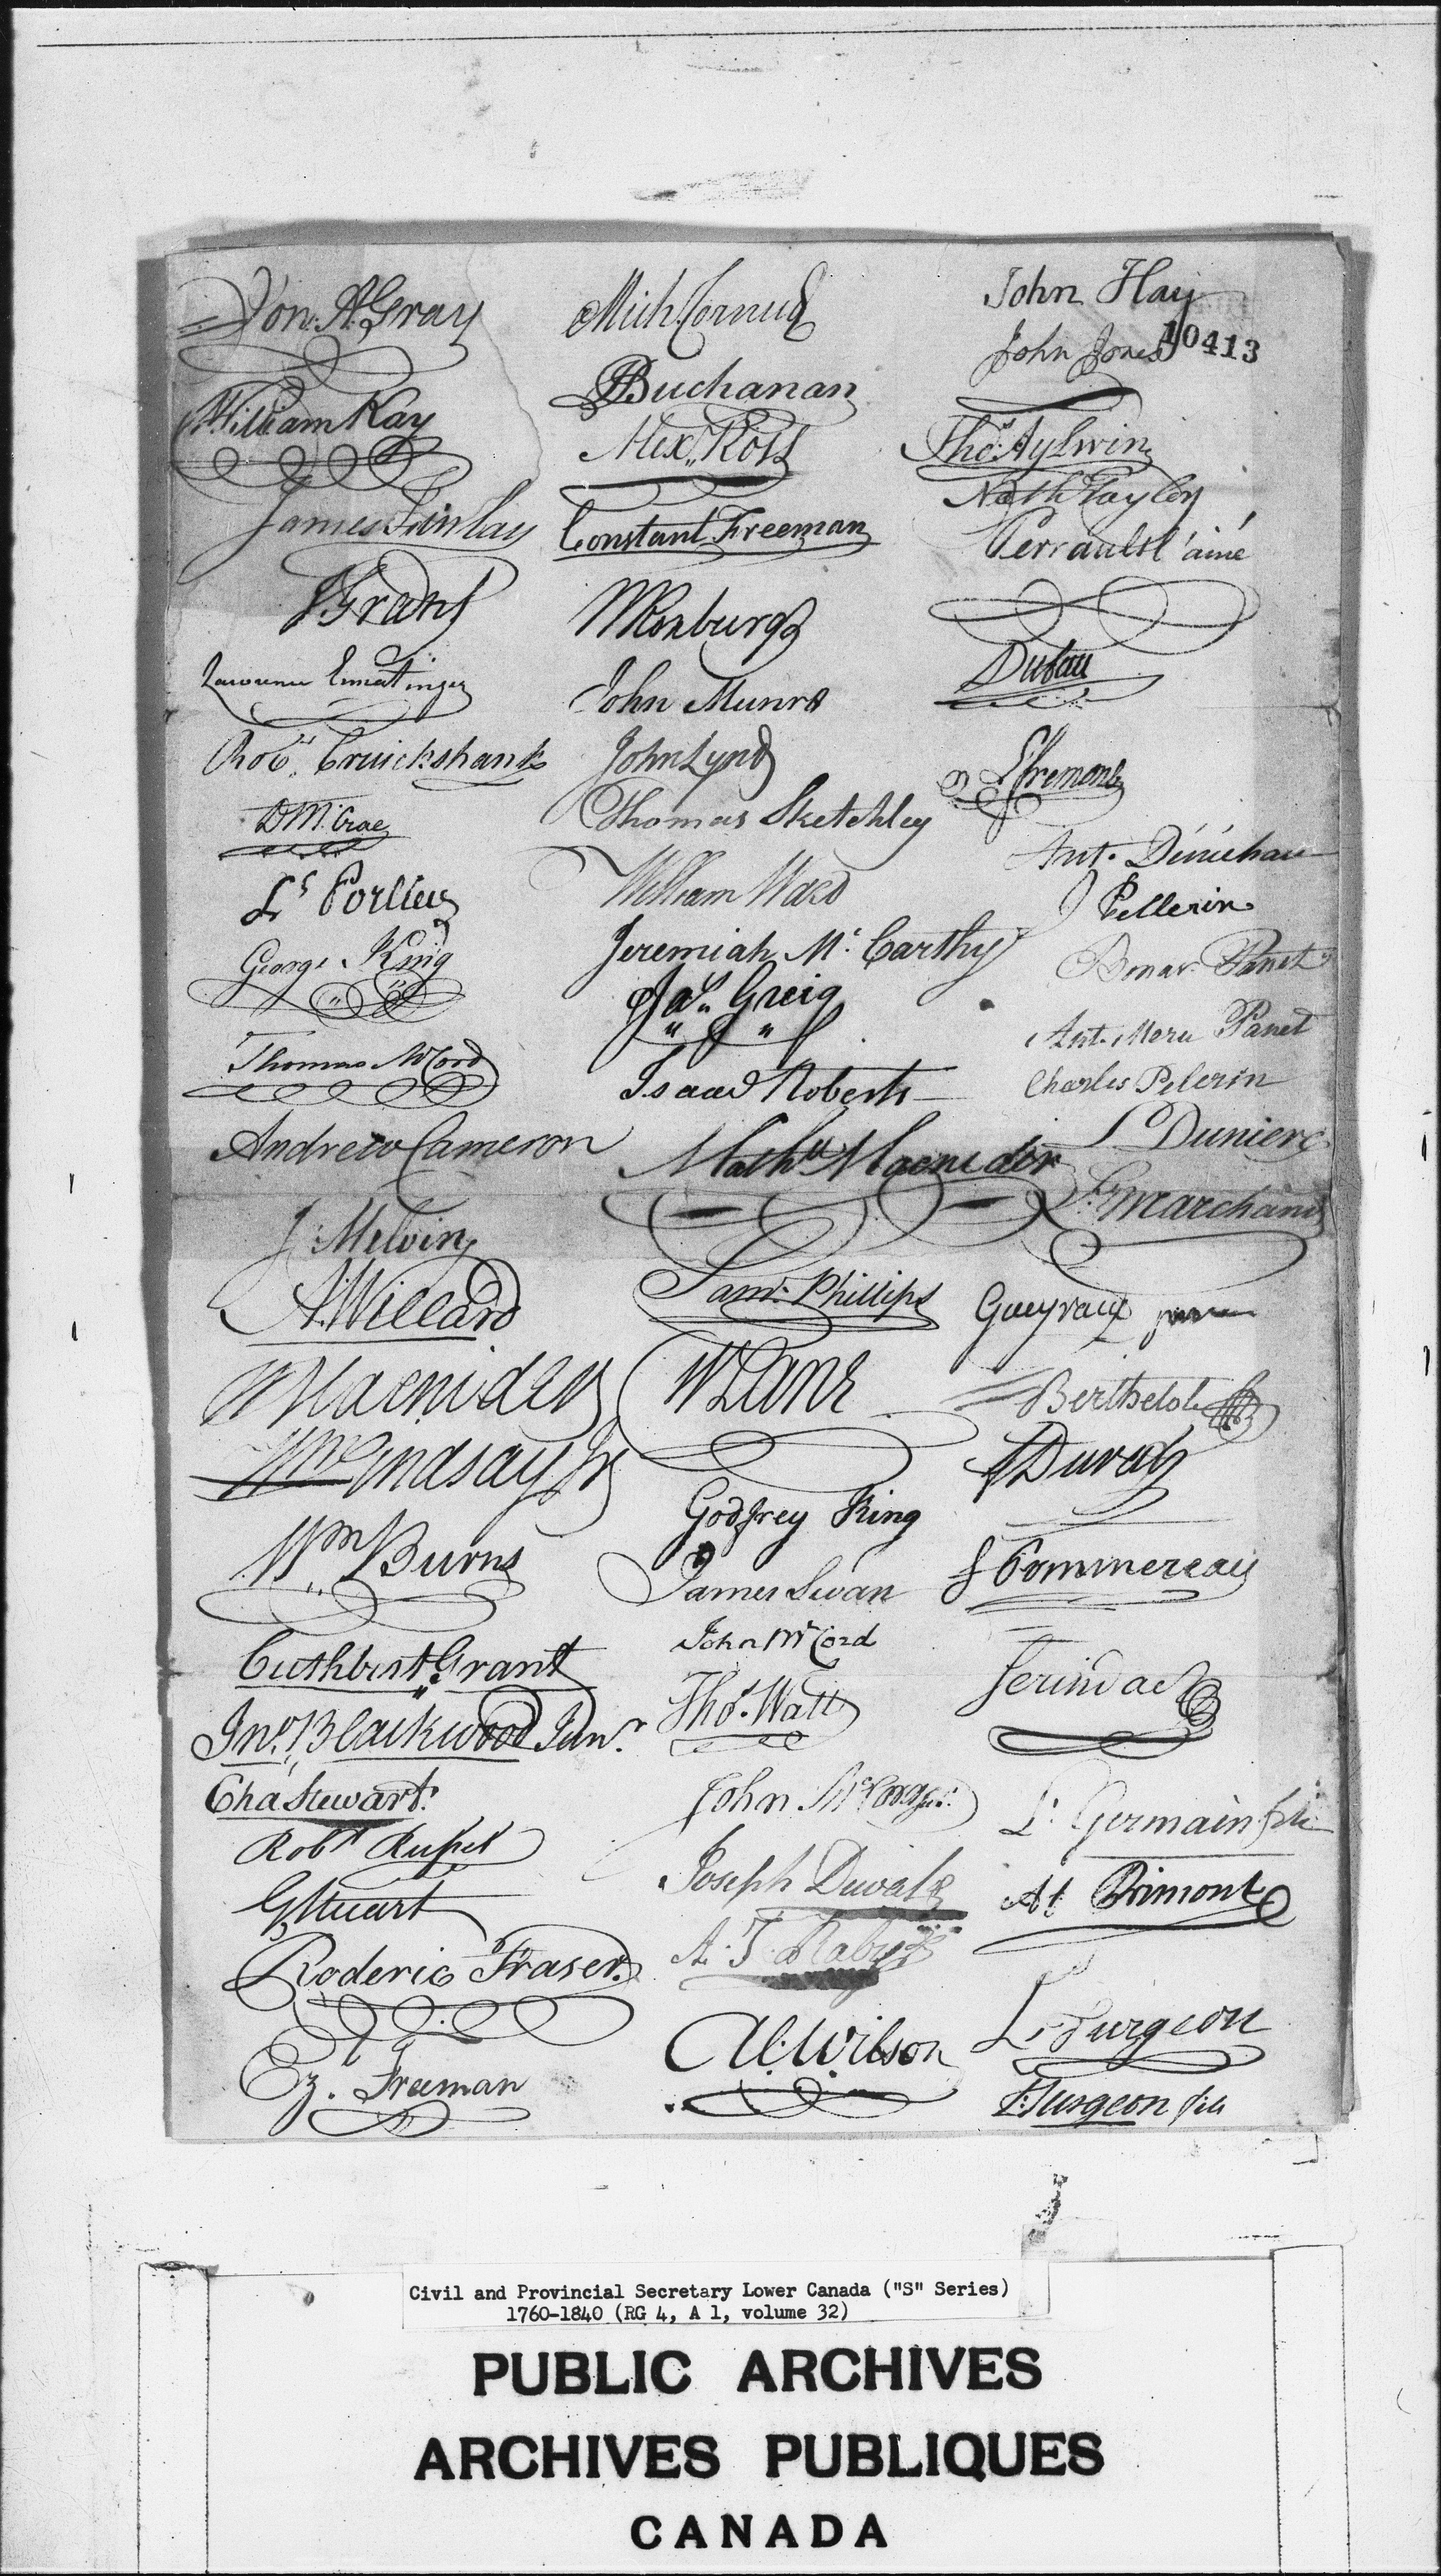 Jon. A. Gray
William Kay
James Finlay
J Grant
Lawrence Ermatinger
Robt. Cruickshank
D McCrae
Ls Porlier
George King
Thomas McCord
Andrew Cameron
J: Melvin
A. Willard
W Macnider
Wm Lindsay Jr
Wm Burns
Cuthbert Grant
Jno. Blackwood Junr.
Chas Stewart
Robt Russel
G Stuart
Roderic Fraser.
Ez. Freeman
Mich. Cornud
Buchanan
Alex. Ross
Constant Freeman
W Roxburgh
John Munro
John Lynd
Thomas Sketchley
William Ward
Jeremiah Mc Carthy
Jas. Greig
Isaac Roberts
Mathw Macnider
Saml. Phillips
W Lane
Godfrey King
James Swan
John McCord
Thos. Watt
John McCord Jur.
Joseph Duval
A. J. Raby
Al. Wilson
John Hay
John Jones
10413
Thos. Aylwin
Nath Taylor
Perrault l'ainé
Dufau
Fremont
Ant. Dénéchau
J Pellerin
Bonav. Panet
Ant. Panet
Charles Pelerin
Ls Duniere
Fr. Marchand
Berthelot
Duval
Pommereau
Ls Germain fils
At Primont
L. Turgeon
L. Turgeon fils
Civil and Provincial Secretary Lower Canada ("S" Series)
1760-1840 (RG 4, A 1, volume 32)
PUBLIC ARCHIVES
ARCHIVES PUBLIQUES
CANADA